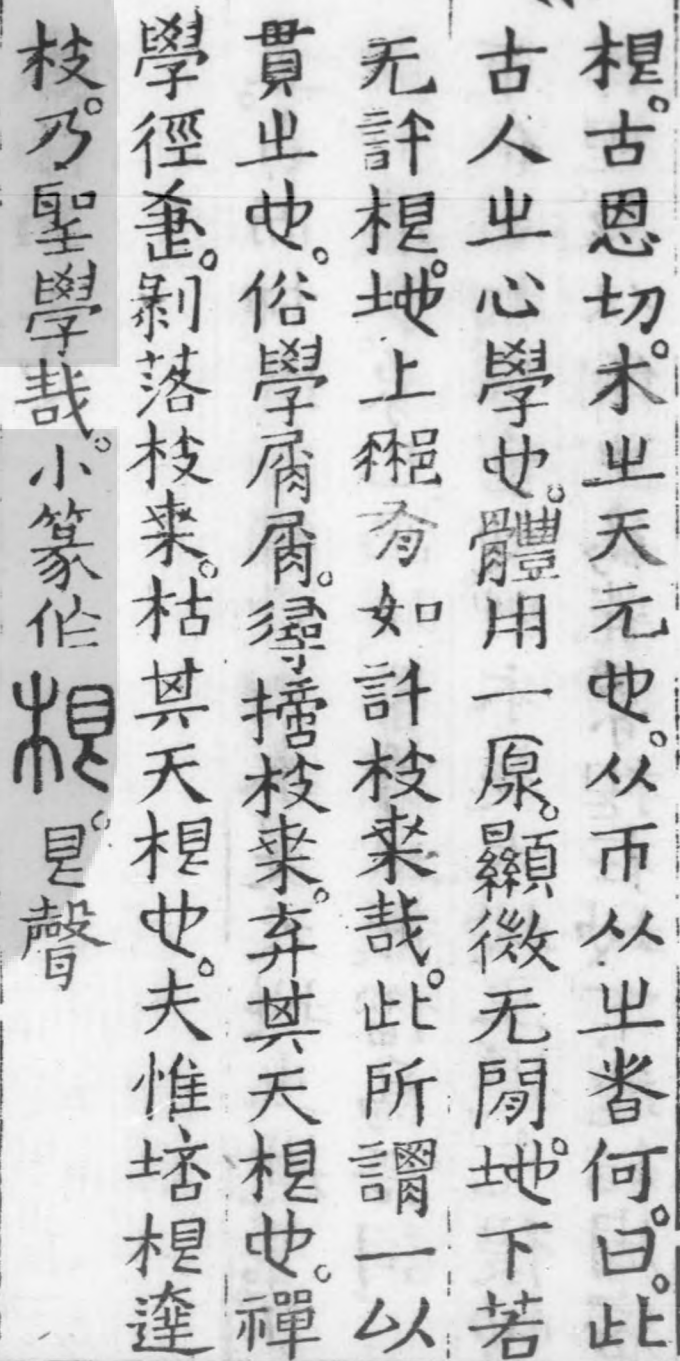 根。古恩切。木㞢天元也。从帀从㞢者何。曰。此
古人㞢心學也。體用一原。顯微无閒。地下若
无許根。地上那有如許枝葉哉。此所謂一以
貫㞢也。俗學屑屑。尋擣枝葉。弃其天根也。禪
學徑疌。剝落枝葉。枯其天根也。夫惟培根達
枝。乃聖學哉。小篆作根。㫐聲